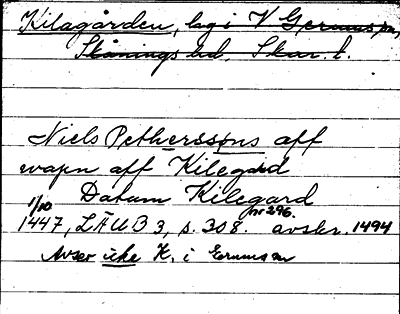 Kilagården, lag i V Gerums sn,
Skånings hd, Skar. l.
Niels Petherssøns aff
wapn aff Kilegard
Datum Kilegard
1/10 nr 296.
1447, LÄUB 3, s. 308. avskr. 1494
Avser icke K. i Gerums sn